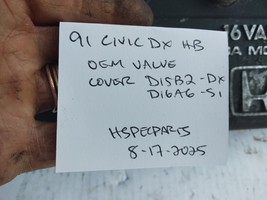 16 VA
91 CIVIC DX HB
OEM VALVE
COVER D15B2-DX
D16A6-SI
HSPECPARTS
8-17-2025